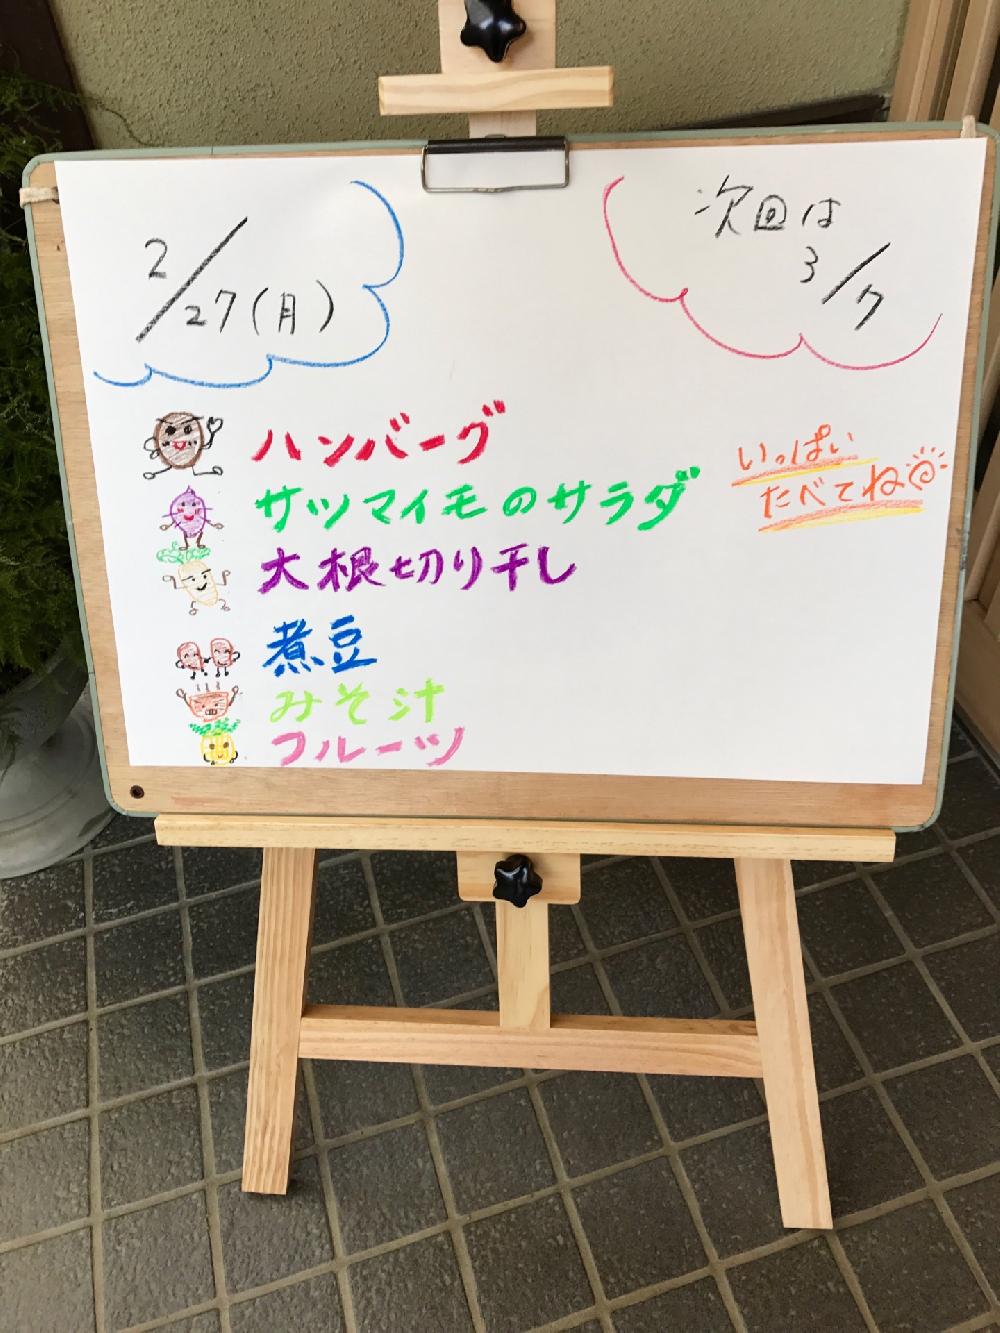 2/27(月)
次回は
3/7
ハンバーグ
サツマイモのサラダ
大根切り干し
煮豆
みそ汁
フルーツ
いっぱい
たべてね